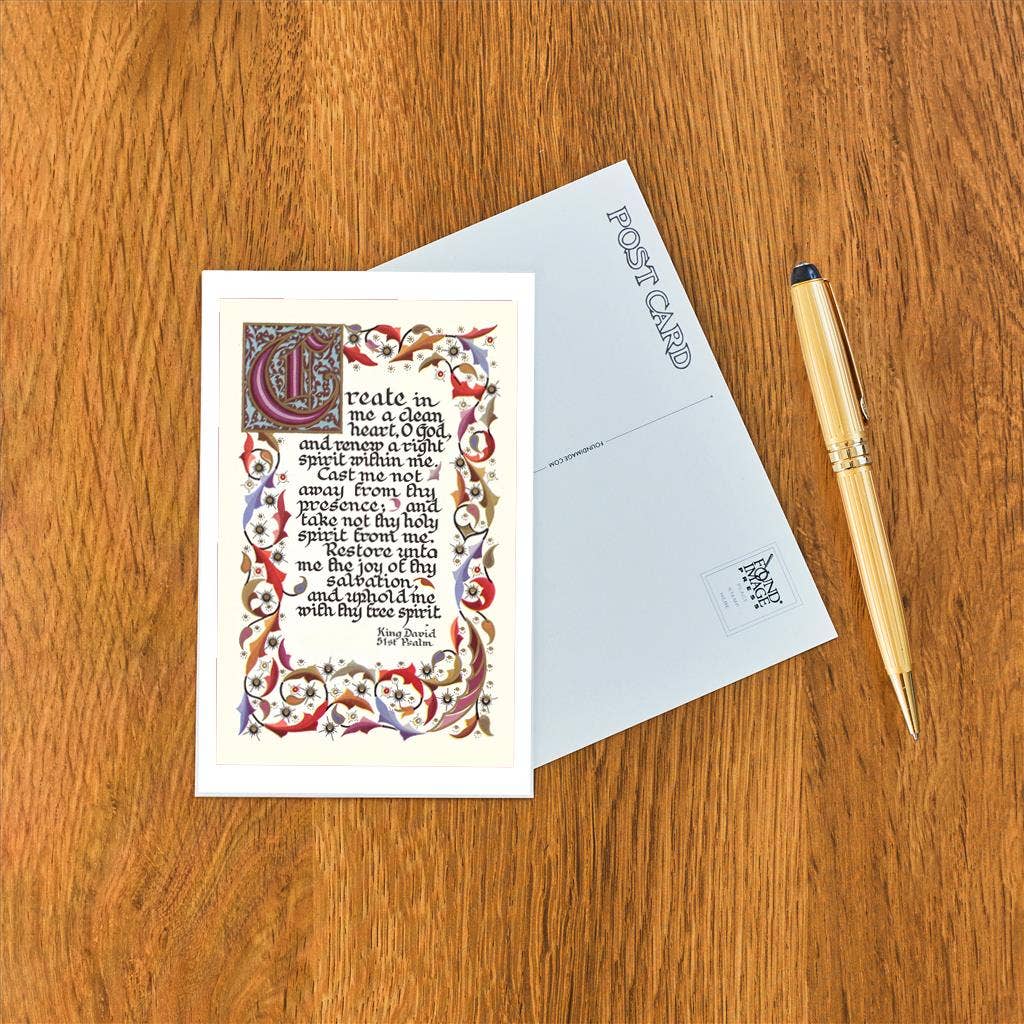 Create in
me a clean
heart, O God,
and renew a right
spirit within me.
Cast me not
away from thy
presence; and
take not thy holy
spirit from me.
Restore unto
me the joy of thy
salvation,
and uphold me
with thy free spirit.
King David
51st Psalm
POST CARD
FOUNDIMAGE.COM
FOUND
IMAGE
PRESS
PLACE
STAMP
HERE